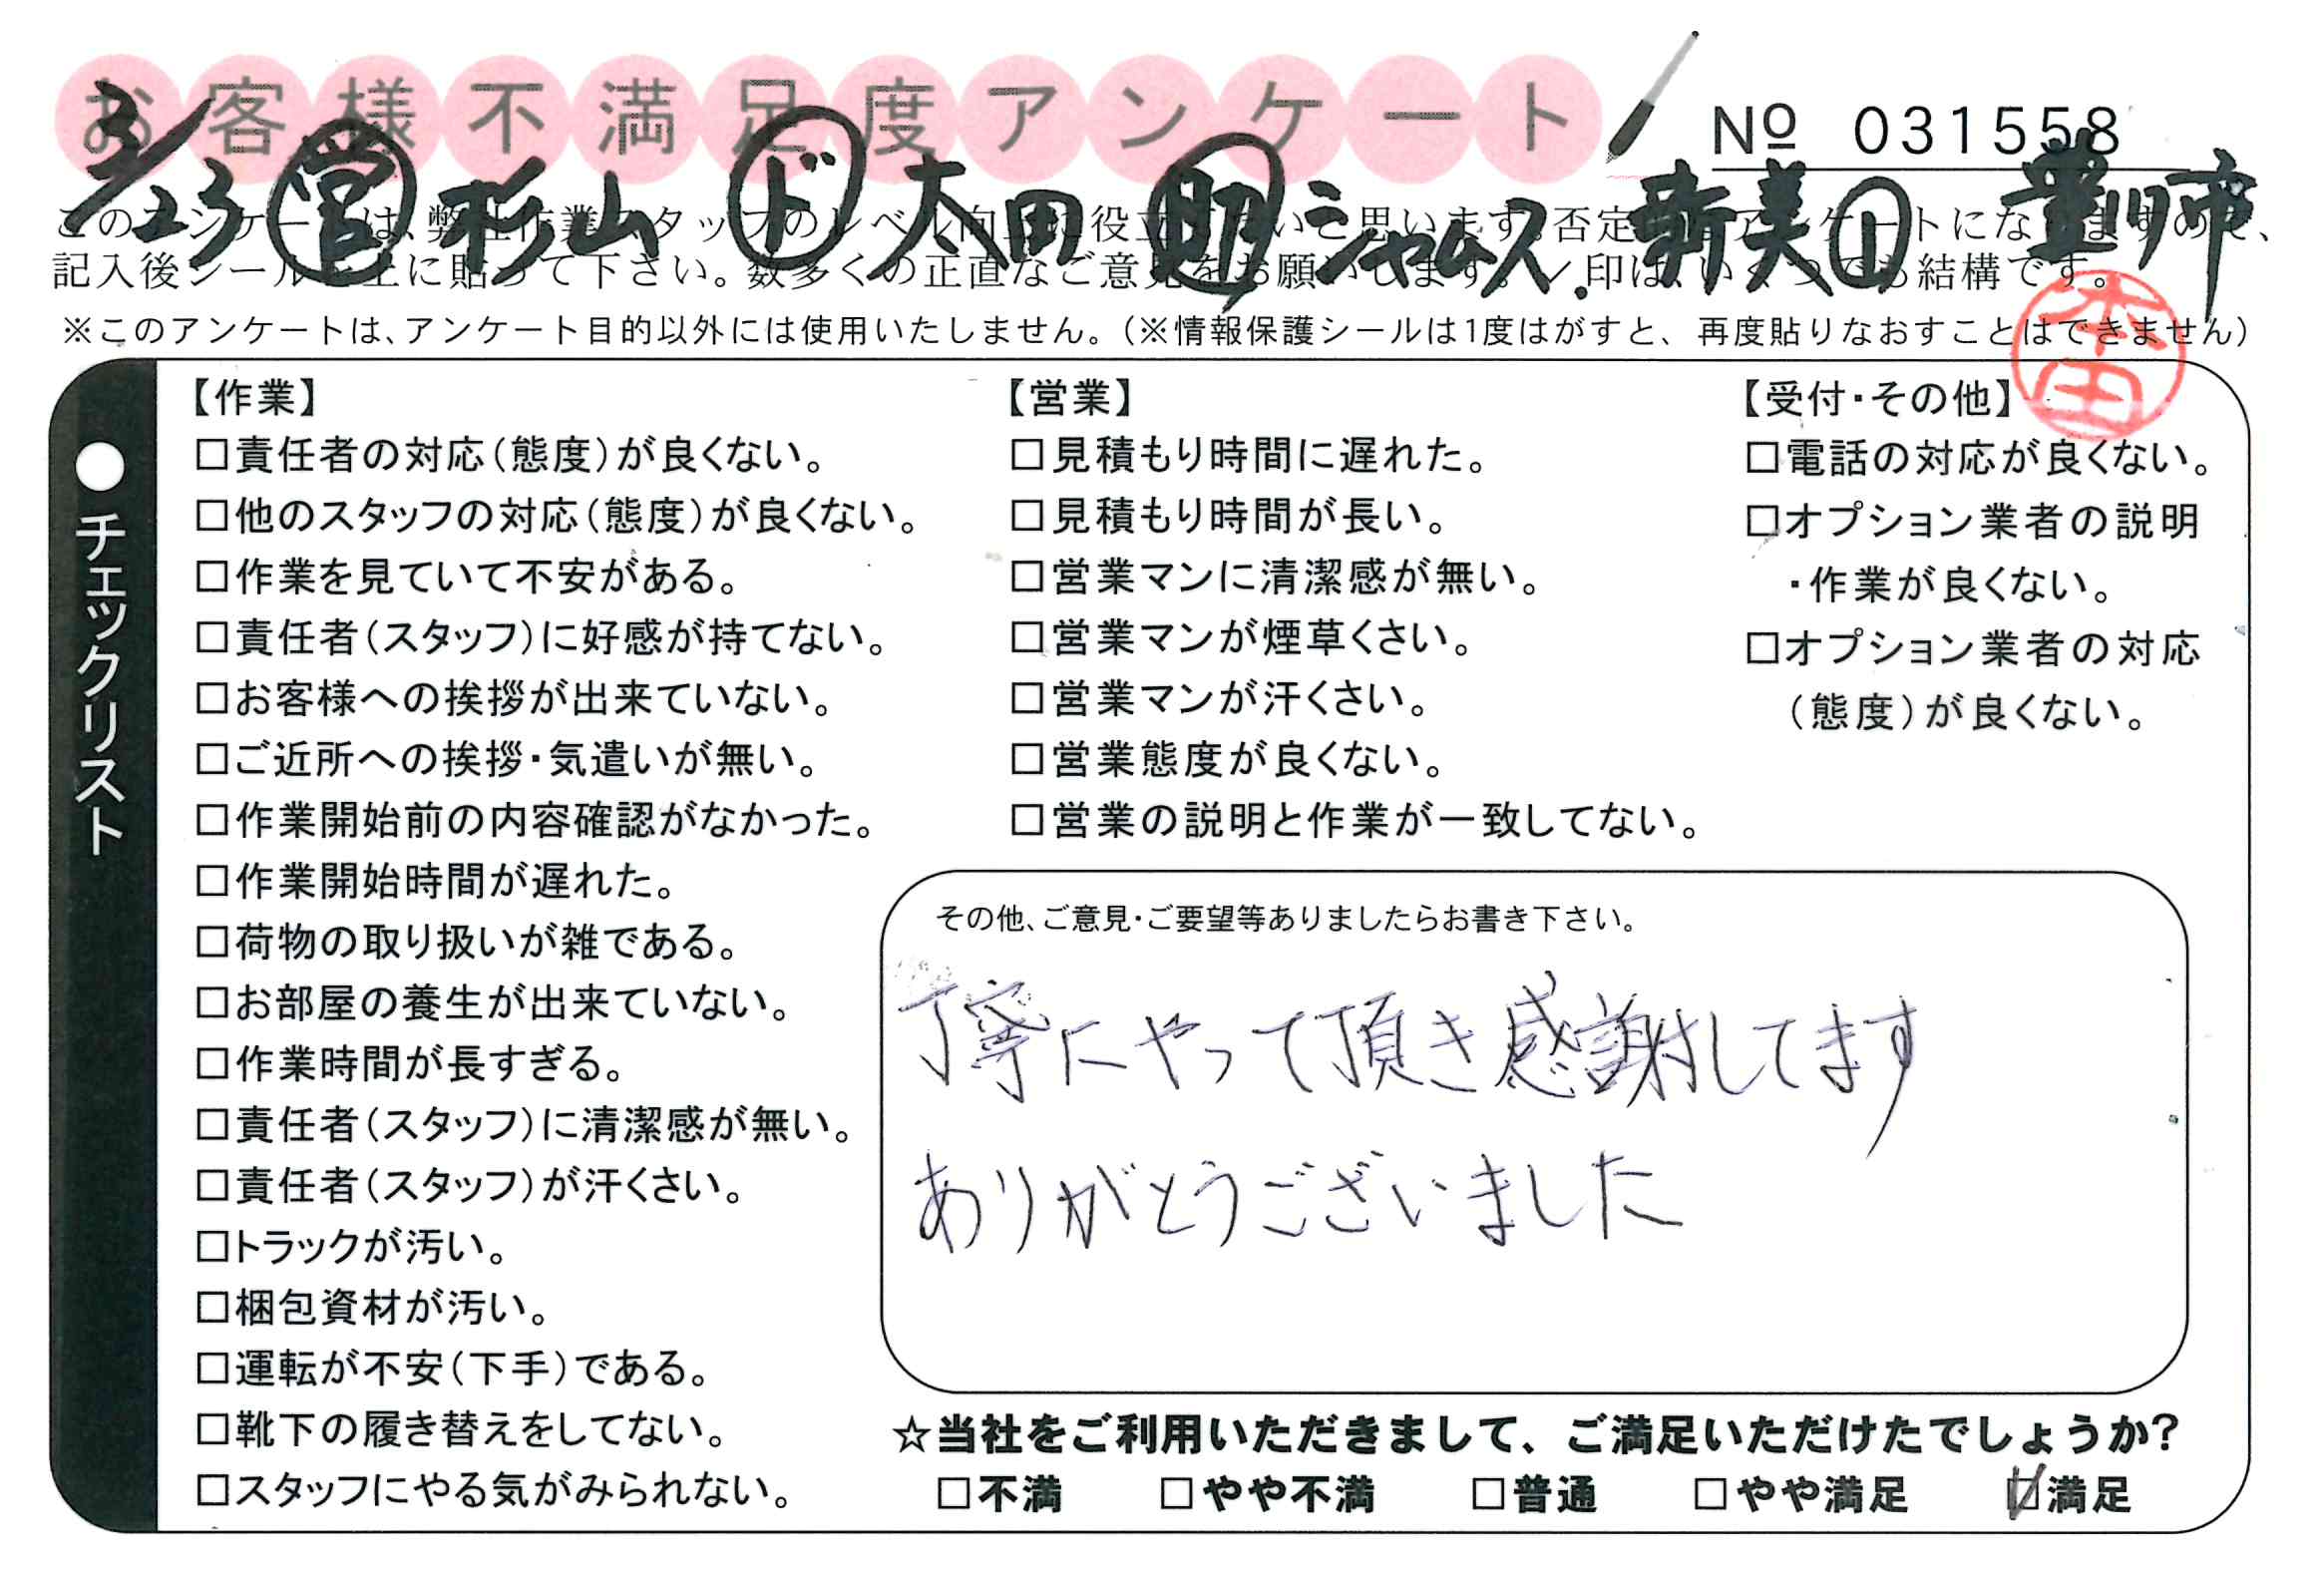 お客様不満足度アンケート
No 031558
3/23 営 杉山 ド 太田 助 シャムス.新美① 豊川市
このアンケートは、弊社作業スタッフのレベル向上に役立てたいと思います。否定的なアンケートになりますので、
記入後シールを上に貼って下さい。数多くの正直なご意見をお願いします。✓印は、いくつでも結構です。
※このアンケートは、アンケート目的以外には使用いたしません。(※情報保護シールは1度はがすと、再度貼りなおすことはできません)
本田
●チェックリスト
【作業】
□責任者の対応(態度)が良くない。
□他のスタッフの対応(態度)が良くない。
□作業を見ていて不安がある。
□責任者(スタッフ)に好感が持てない。
□お客様への挨拶が出来ていない。
□ご近所への挨拶・気遣いが無い。
□作業開始前の内容確認がなかった。
□作業開始時間が遅れた。
□荷物の取り扱いが雑である。
□お部屋の養生が出来ていない。
□作業時間が長すぎる。
□責任者(スタッフ)に清潔感が無い。
□責任者(スタッフ)が汗くさい。
□トラックが汚い。
□梱包資材が汚い。
□運転が不安(下手)である。
□靴下の履き替えをしてない。
□スタッフにやる気がみられない。
【営業】
□見積もり時間に遅れた。
□見積もり時間が長い。
□営業マンに清潔感が無い。
□営業マンが煙草くさい。
□営業マンが汗くさい。
□営業態度が良くない。
□営業の説明と作業が一致してない。
【受付・その他】
□電話の対応が良くない。
□オプション業者の説明
・作業が良くない。
□オプション業者の対応
(態度)が良くない。
その他、ご意見・ご要望等ありましたらお書き下さい。
丁寧にやって頂き感謝してます
ありがとうございました
☆当社をご利用いただきまして、ご満足いただけたでしょうか?
□不満 □やや不満 □普通 □やや満足 ☑満足